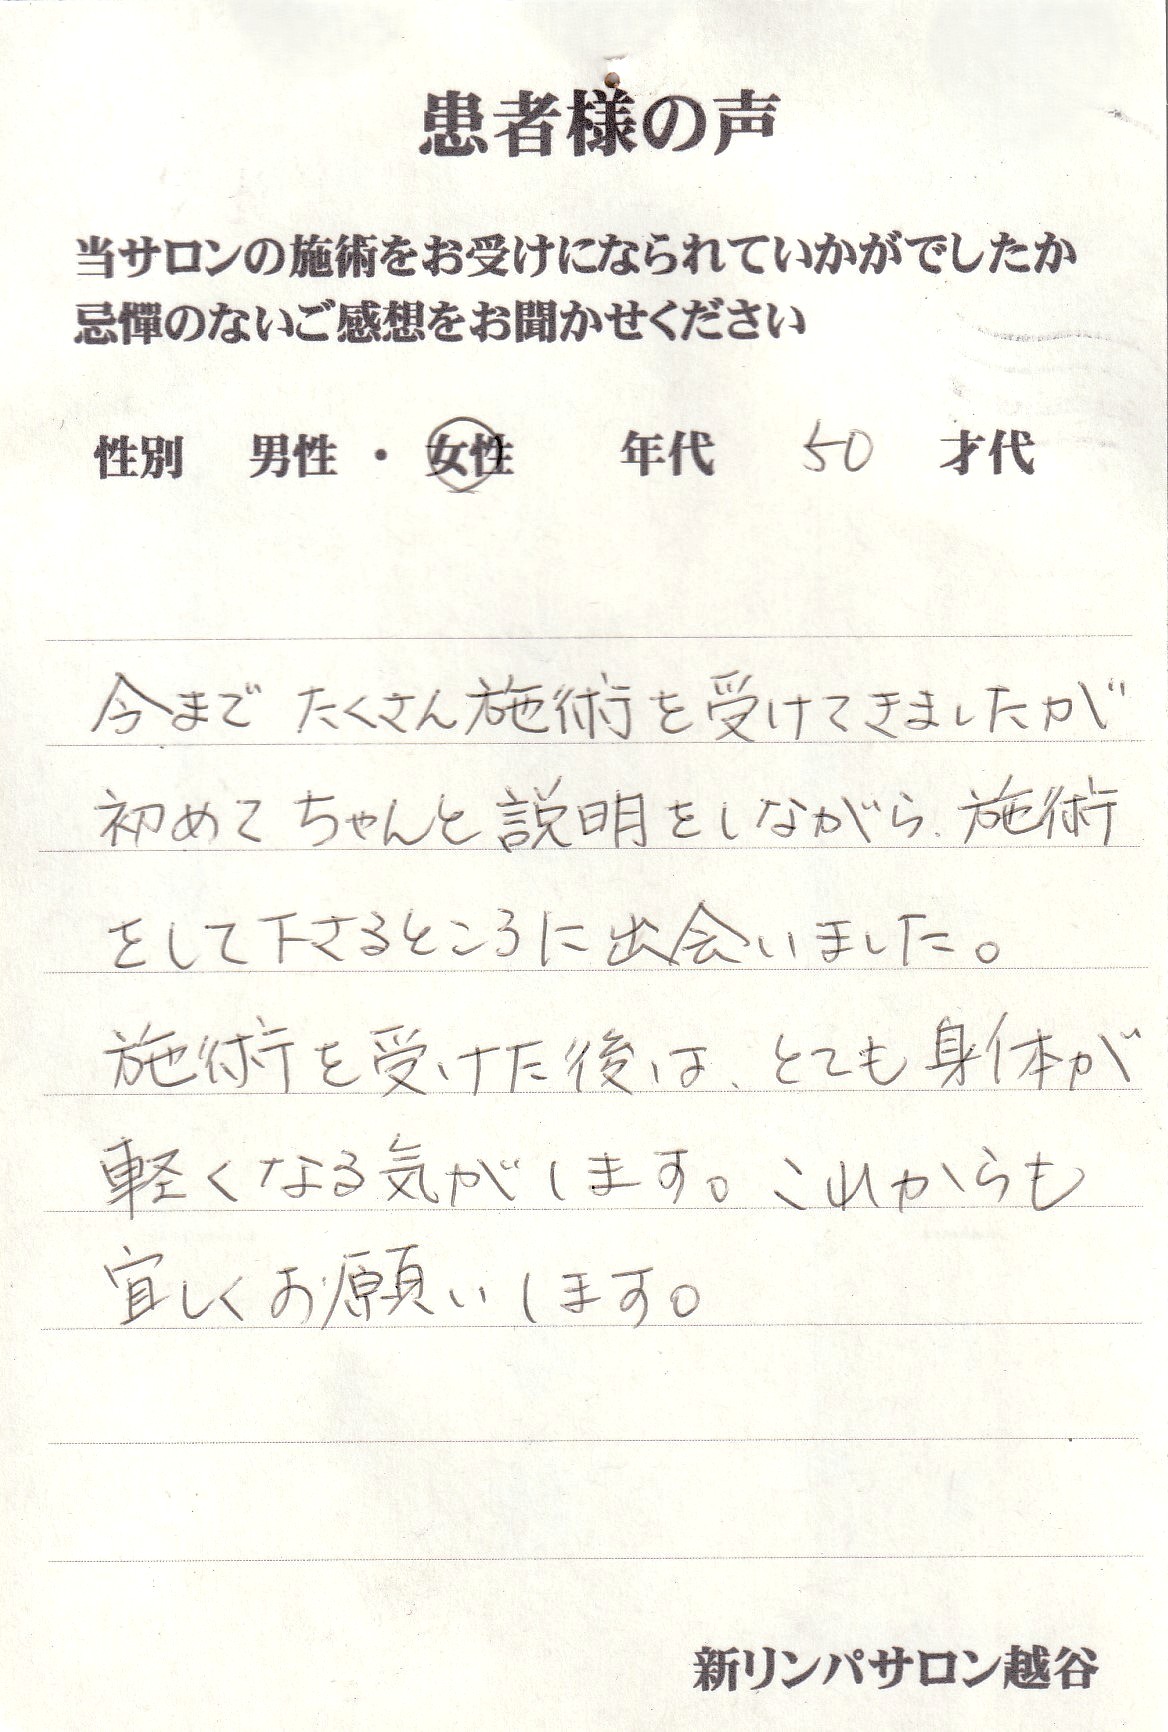 患者様の声
当サロンの施術をお受けになられていかがでしたか
忌憚のないご感想をお聞かせください
性別 男性 ・ 女性 年代 50 才代
今まで たくさん施術を受けてきましたが
初めて ちゃんと説明をしながら、施術
をして下さるところに出会いました。
施術を受けた後は、とても身体が
軽くなる気がします。これからも
宜しくお願いします。
新リンパサロン越谷